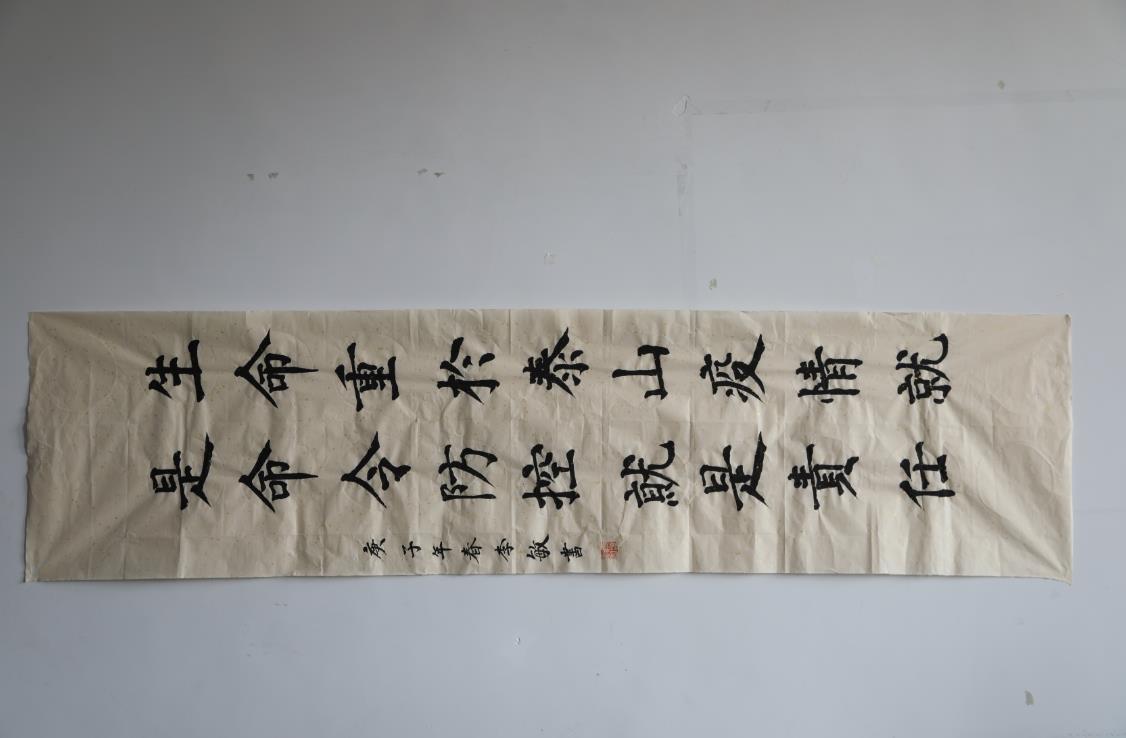 生命重於泰山疫情就
是命令防控就是責任
庚子年春李敏書